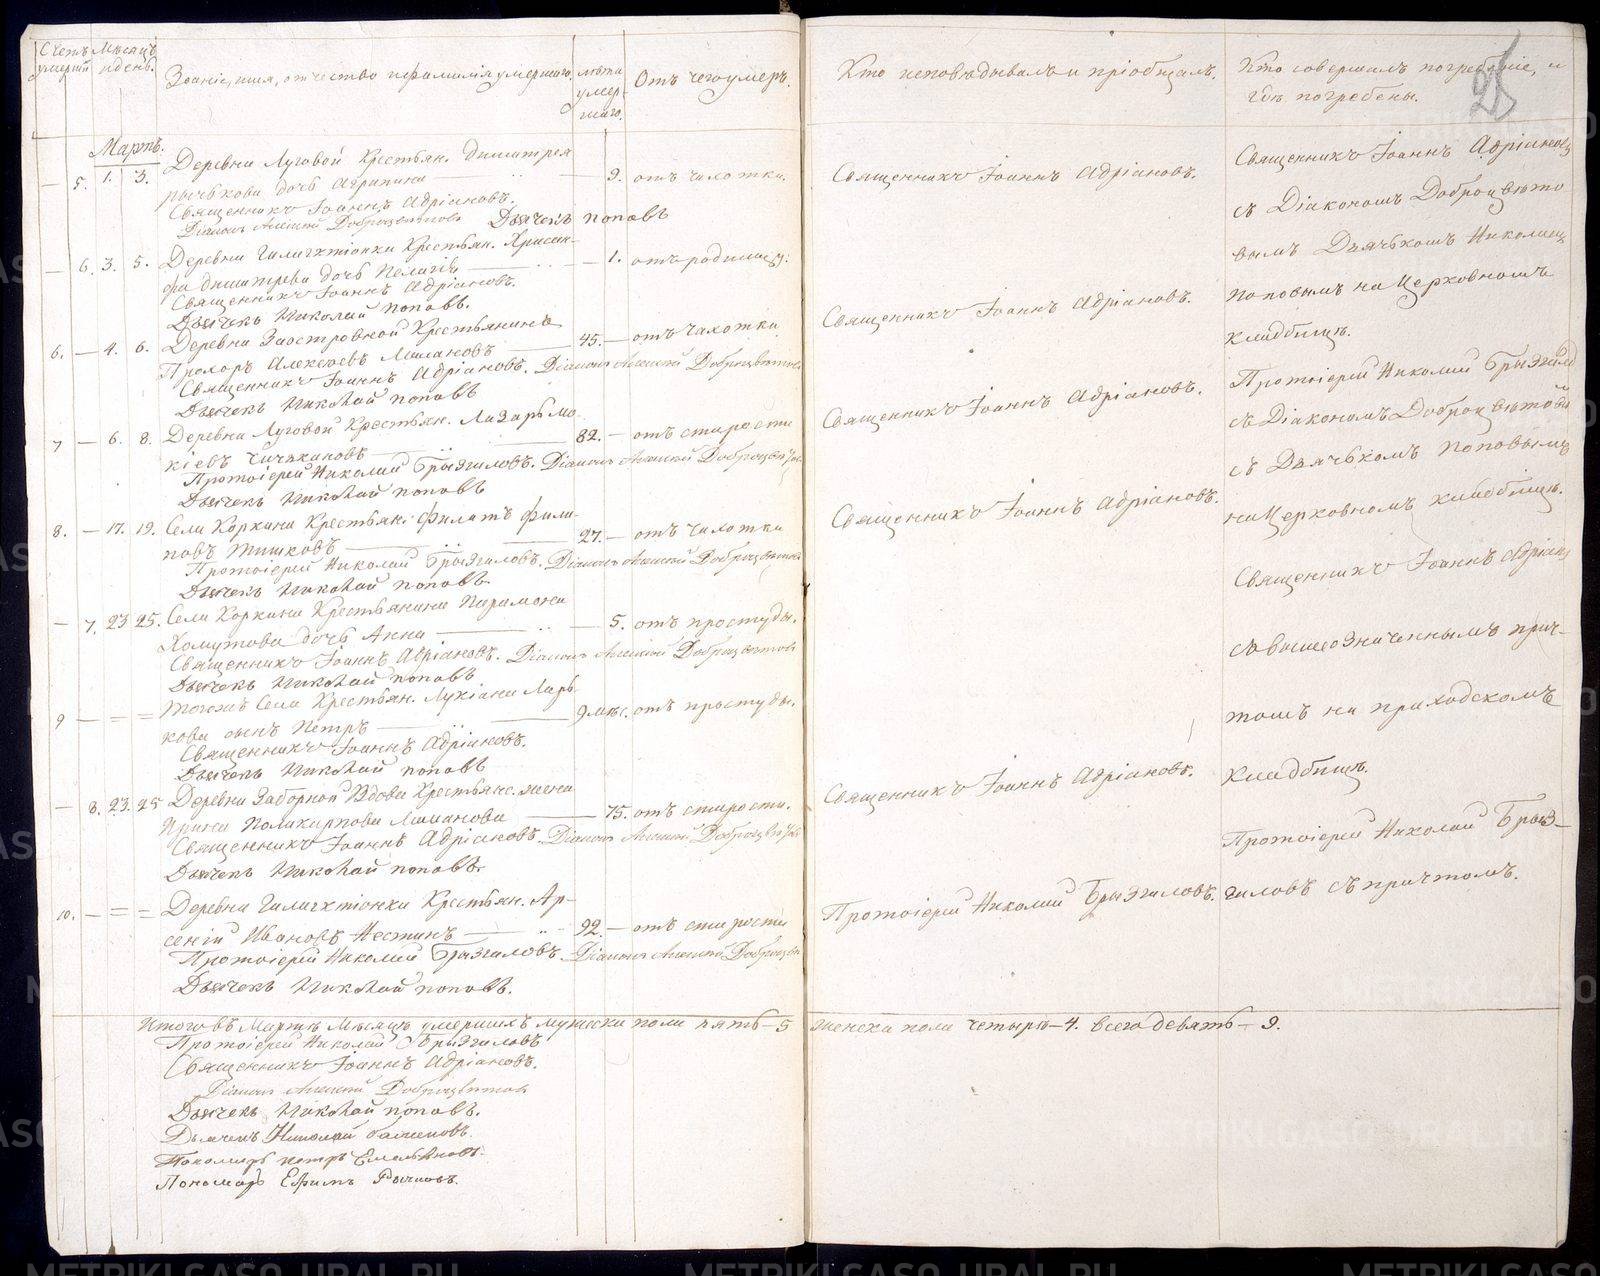 Счетъ умершій
Мѣсяцъ и день.
Званіе, имя, отчество и фамилія умершаго.
лѣта умер-
шаго.
Отъ чего умеръ.
Кто исповѣдывалъ и пріобщалъ.
Кто совершалъ погребеніе, и
гдѣ погребены.
Мартъ.
— 5. 1. 3. Деревни Луговой Крестьян. Димитрея
дочь Агрипина — 9. отъ чахотки.
Священникъ Іоаннъ Адріановъ.
Діаконъ Алексѣй Доброцвѣтовъ Дьячекъ Поповъ
— 6. 3. 5. Деревни Крестьян. Хрисан-
фа Димитрева дочь Пелагія — 1. отъ родимцу.
Священникъ Іоаннъ Адріановъ.
Дьячекъ Николай Поповъ.
6. — 4. 6. Деревни Заостровной Крестьянинъ
Прохоръ Алексѣевъ — 45. — отъ чахотки
Священникъ Іоаннъ Адріановъ. Діаконъ Алексѣй Доброцвѣтовъ
Дьячекъ Николай Поповъ
7 — 6. 8. Деревни Луговой Крестьян. Лазарь Мо-
кіевъ — 82. — отъ старости
Протоіерей Николай Брызгаловъ. Діаконъ Алексѣй Доброцвѣтовъ
Дьячекъ Николай Поповъ
8. — 17. 19. Села Коркина Крестьян. Филатъ Фили-
повъ — 27. — отъ чахотки
Протоіерей Николай Брызгаловъ. Діаконъ Алексѣй Доброцвѣтовъ
Дьячекъ Николай Поповъ.
— 7. 23 25. Села Коркина Крестьянина Парамона
Хомутова дочь Анна — 5. отъ простуды.
Священникъ Іоаннъ Адріановъ. Діаконъ Алексѣй Доброцвѣтовъ
Дьячекъ Николай Поповъ
9 — = = Тогожъ Села Крестьян. Лукіана Ларь-
кова сынъ Петръ — 9 мѣс. отъ простуды.
Священникъ Іоаннъ Адріановъ.
Дьячекъ Николай Поповъ
— 8. 23. 25 Деревни Заборной Вдова Крестьянс. жена
Ирина Поликарпова — 75. отъ старости.
Священникъ Іоаннъ Адріановъ. Діаконъ Алексѣй Доброцвѣтовъ
Дьячекъ Николай Поповъ.
10. — = = Деревни Крестьян. Ар-
сеній Ивановъ — 92. — отъ старости
Протоіерей Николай Брызгаловъ. Діаконъ Алексѣй Доброцвѣтовъ
Дьячекъ Николай Поповъ.
Итого въ Мартѣ Мѣсяцѣ умершихъ мужеска пола пять — 5 женска пола четыре — 4. всего девять — 9.
Протоіерей Николай Брызгаловъ
Священникъ Іоаннъ Адріановъ.
Діаконъ Алексѣй Доброцвѣтовъ
Дьячекъ Николай Поповъ.
Дьячекъ Николай
Пономарь Петръ Емельяновъ.
Пономарь Ефимъ
Священникъ Іоаннъ Адріановъ.
Священникъ Іоаннъ Адріановъ.
Священникъ Іоаннъ Адріановъ.
Священникъ Іоаннъ Адріановъ.
Священникъ Іоаннъ Адріановъ.
Протоіерей Николай Брызгаловъ.
Священникъ Іоаннъ Адріановъ
съ Діакономъ Доброцвѣто
вымъ Дьячькомъ Николаем
Поповымъ на Церковномъ
Кладбищѣ.
Протоіерей Николай Брызгалов
съ Діакономъ Доброцвѣтовы
съ Дьячькомъ Поповымъ
на Церковномъ кладбищѣ.
Священникъ Іоаннъ Адріано
съ вышеозначеннымъ прич-
томъ на приходскомъ
Кладбищѣ.
Протоіерей Николай Брыз-
галовъ съ причтомъ.
METRIKI.CASO-URAL.RU